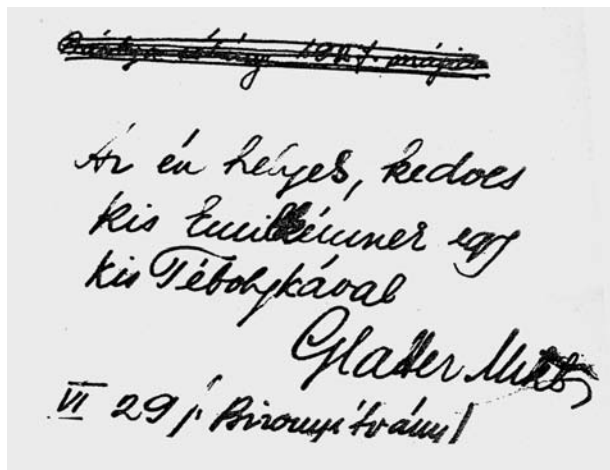 1927. május
Az én helyes, kedves
kis Emilkémnek egy
kis Tébolykával
Glatter Miklós
VI 29 j. Bizonyítvány!